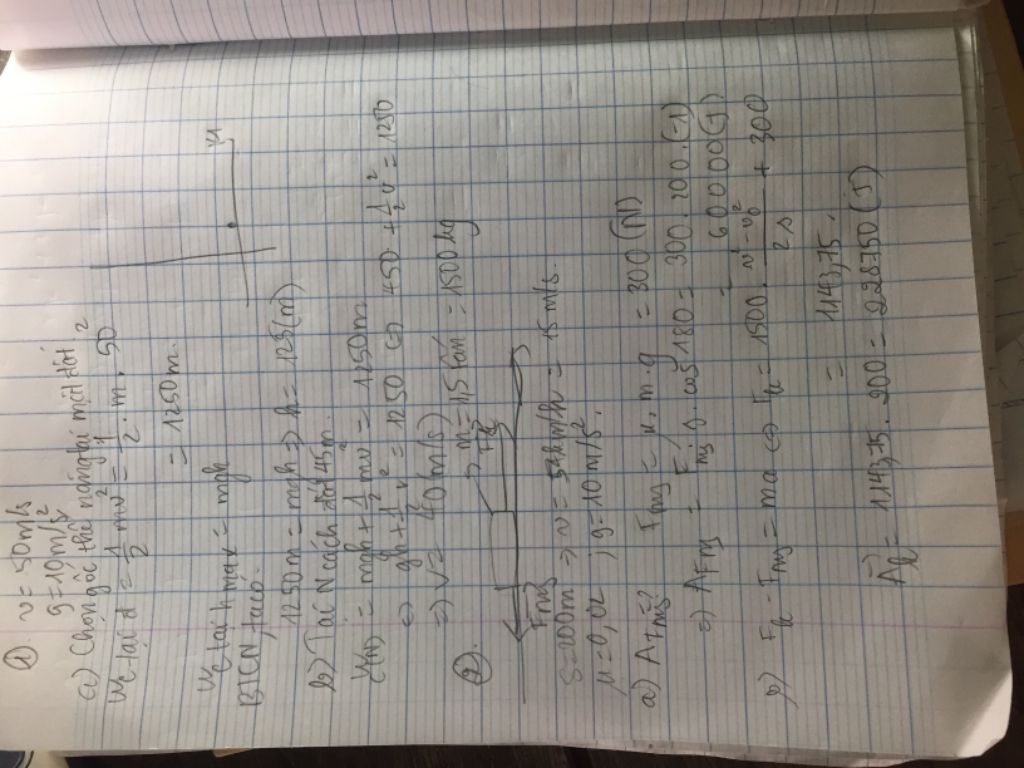 ① v = 50m/s
g = 10m/s²
a) Chọn gốc thế năng tại mặt đất.
W tại đ = 1/2 mv² = 1/2 . m . 50²
= 1250m.
W tại hmax = mgh
BTCN, ta có:
1250m = mgh => h = 125(m)
b) Tại N cách đất 45m.
W(N) = mgh + 1/2 mv² = 1250m
<=> gh + 1/2 v² = 1250 <=> 450 + 1/2 v² = 1250
=> v = 40(m/s)
②. m = 1,5 tấn = 1500kg
Fms Fk
S = 200m => v = 54km/h = 15m/s.
μ = 0,02 ; g = 10m/s².
a) AFms? Fms = μ.m.g = 300(N)
=> AFms = Fms.s.cos180 = 300.200.(-1)
= 60 000(J)
b) Fk - Fms = ma <=> Fk = 1500. v² - v0² / 2s + 300
= 1143,75.
Ak = 1143,75 . 200 = 228750(J)